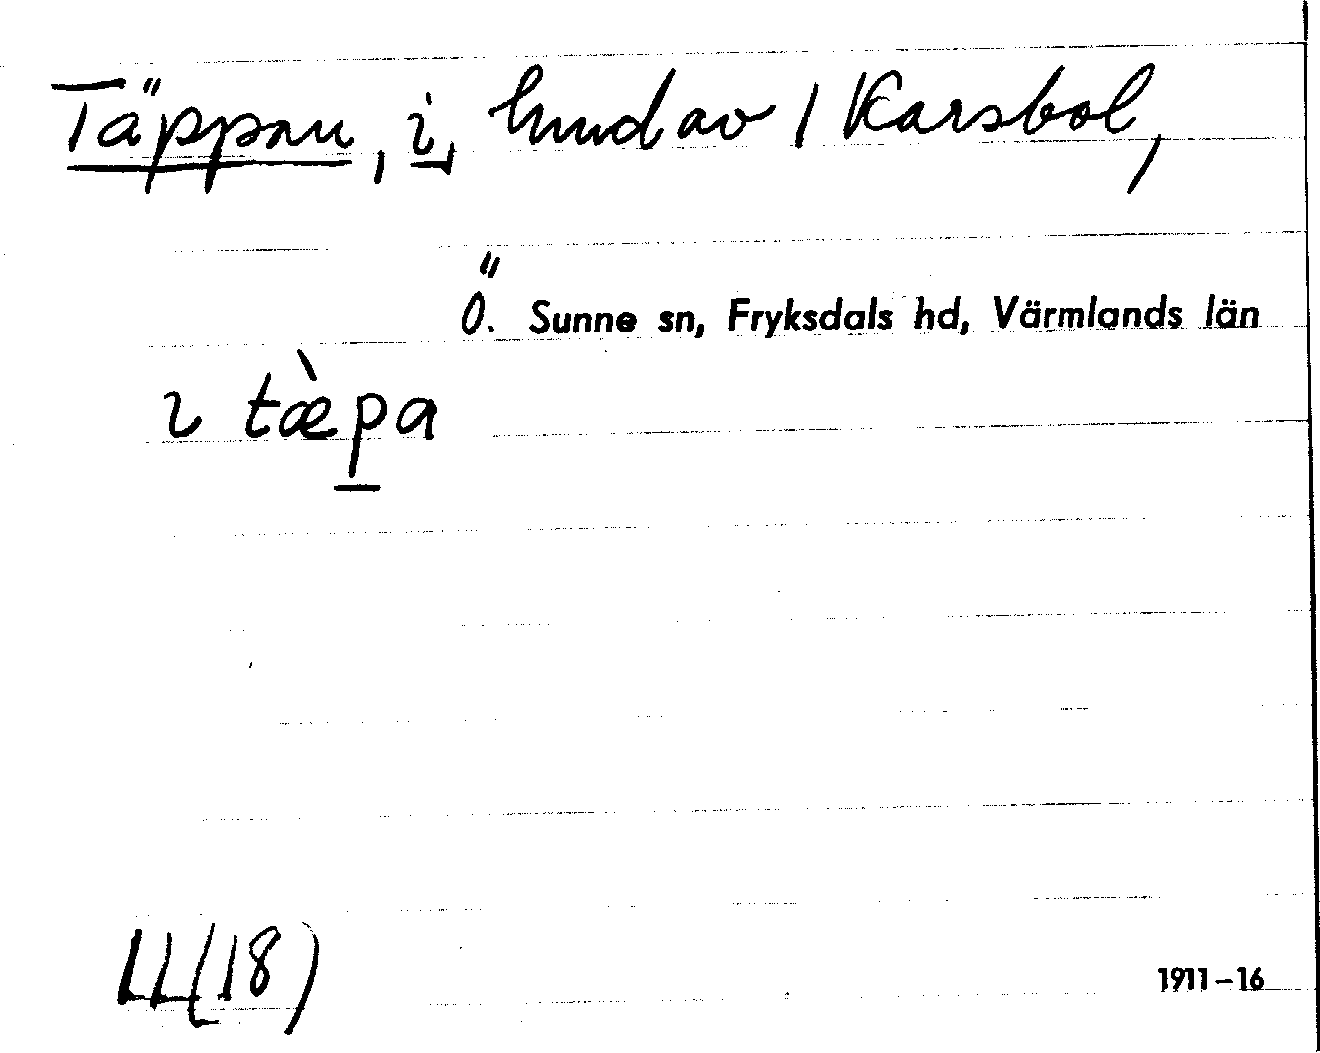 Täppan, i, hmd av 1 Karsbol,
Ö. Sunne sn, Fryksdals hd, Värmlands län
ı tæ̀pa
LL(18)
1911–16